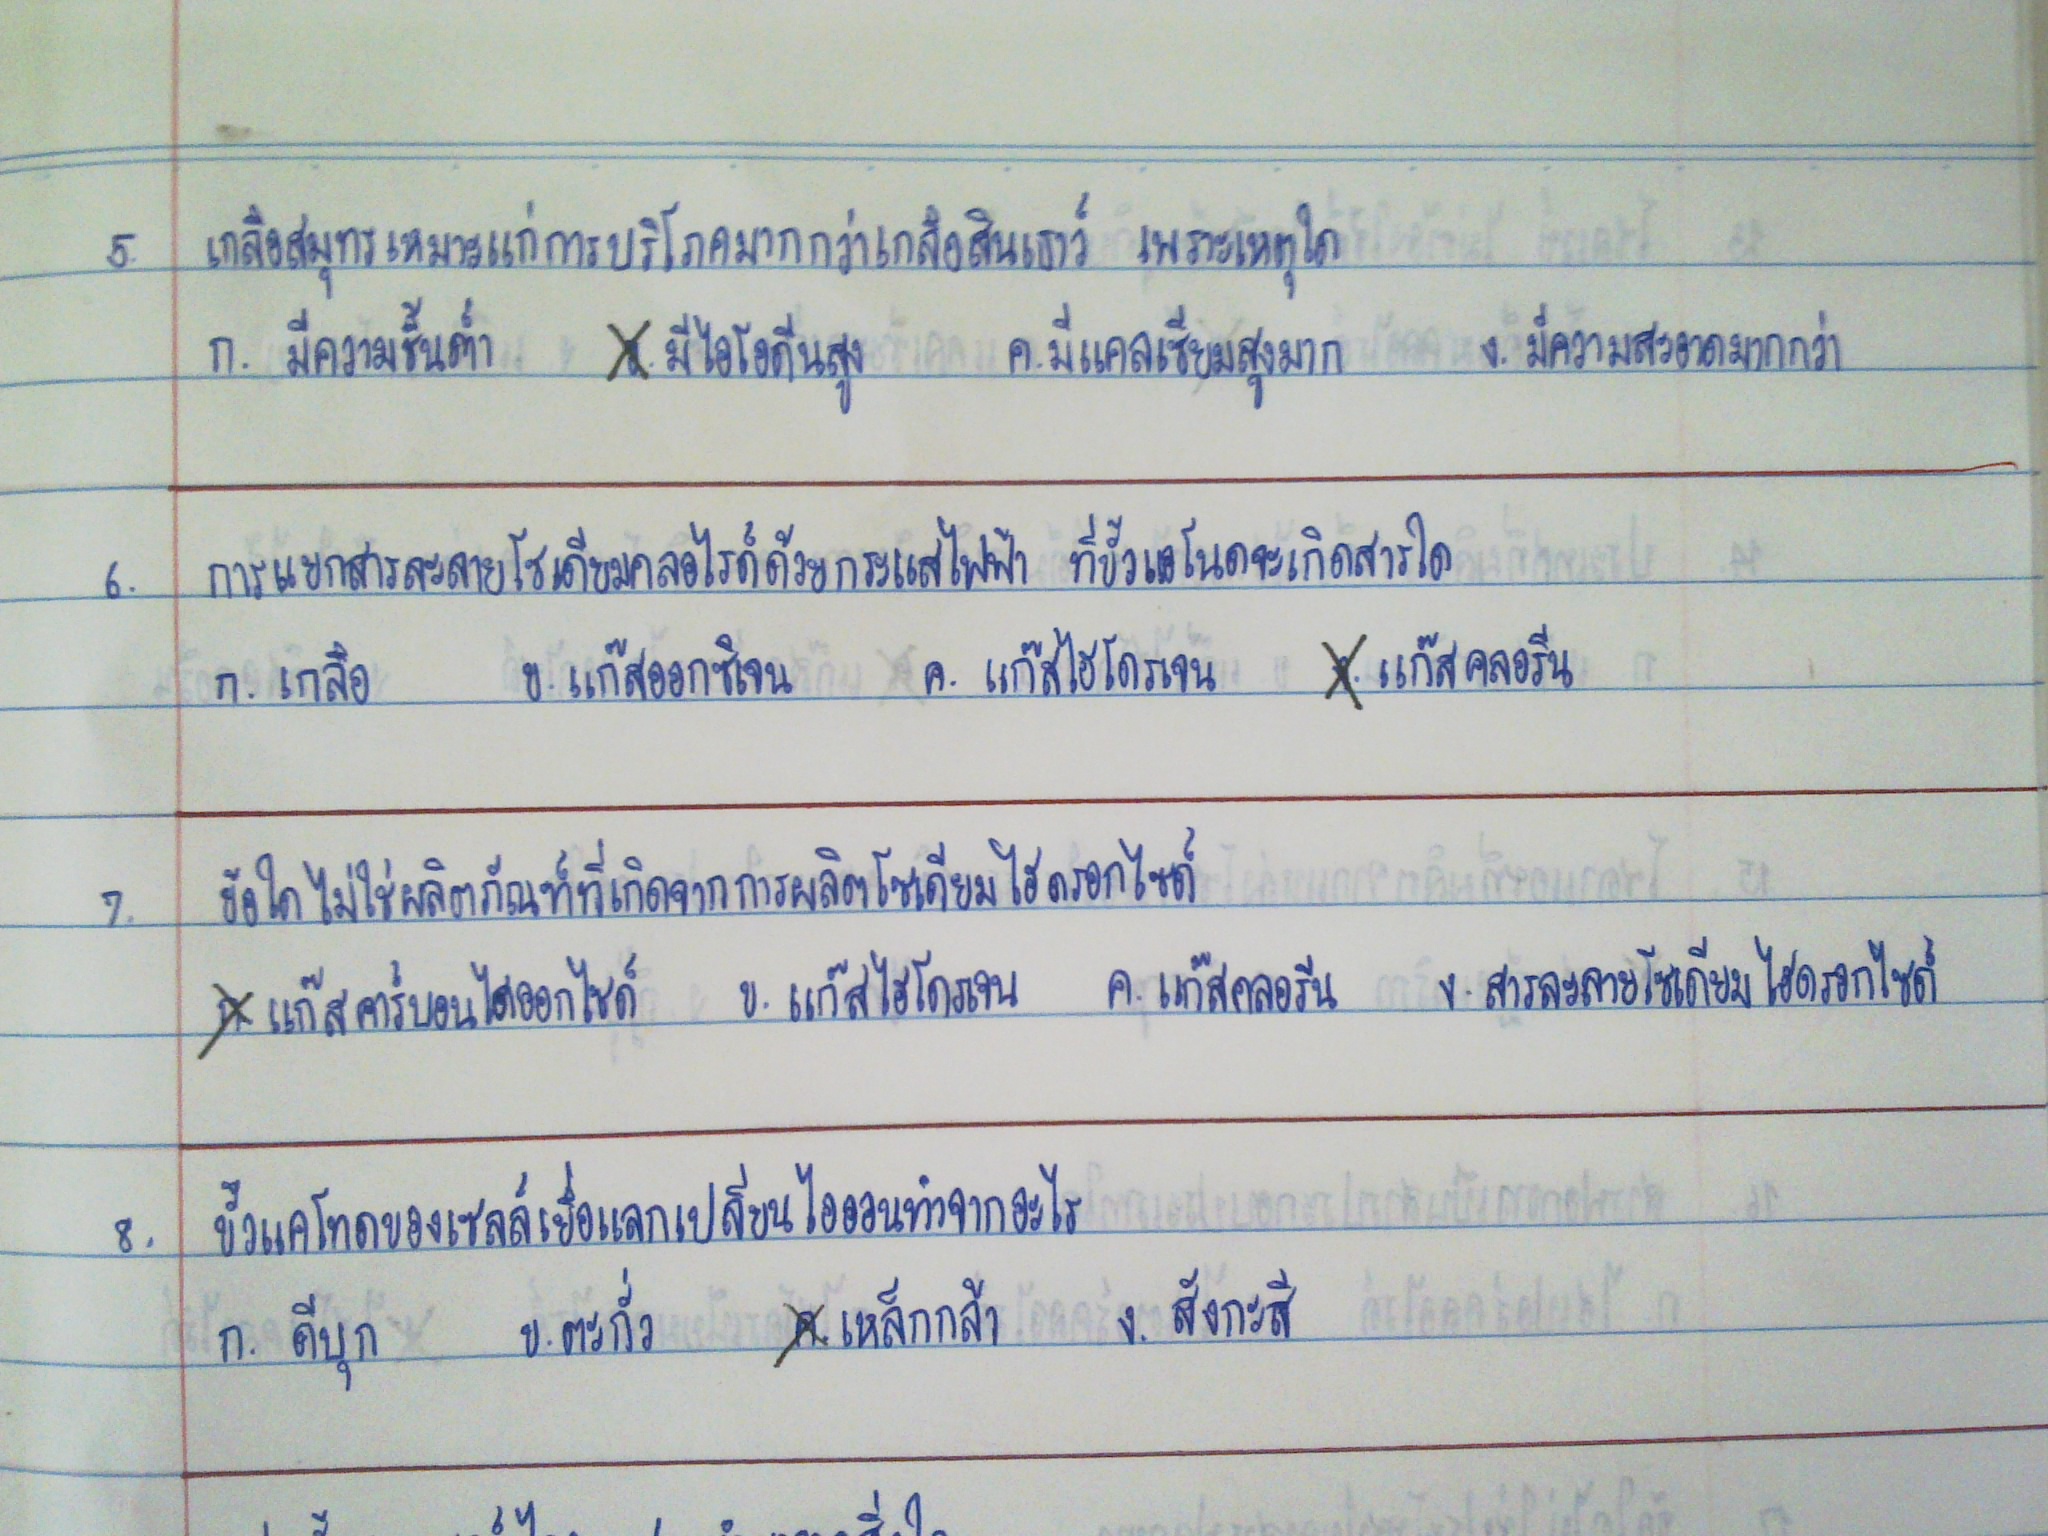 5. เกลือสมุทรเหมาะแก่การบริโภคมากกว่าเกลือสินเธาว์ เพราะเหตุใด
ก. มีความชื้นต่ำ ข. มีไอโอดีนสูง ค. มีแคลเซียมสูงมาก ง. มีความสะอาดมากกว่า
6. การแยกสารละลายโซเดียมคลอไรด์ด้วยกระแสไฟฟ้า ที่ขั้วแอโนดจะเกิดสารใด
ก. เกลือ ข. แก๊สออกซิเจน ค. แก๊สไฮโดรเจน ง. แก๊สคลอรีน
7. ข้อใดไม่ใช่ผลิตภัณฑ์ที่เกิดจากการผลิตโซเดียมไฮดรอกไซด์
ก. แก๊สคาร์บอนไดออกไซด์ ข. แก๊สไฮโดรเจน ค. แก๊สคลอรีน ง. สารละลายโซเดียมไฮดรอกไซด์
8. ขั้วแคโทดของเซลล์เยื่อแลกเปลี่ยนไอออนทำจากอะไร
ก. ดีบุก ข. ตะกั่ว ค. เหล็กกล้า ง. สังกะสี